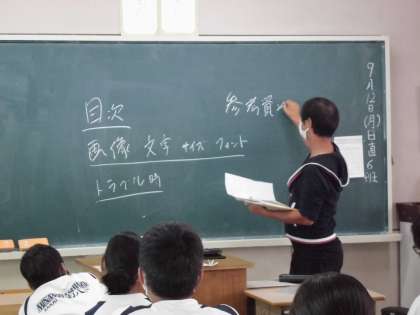 目次
画像 文字 サイズ フォント
トラブル時
参考資
9月12日(月)
日直6班